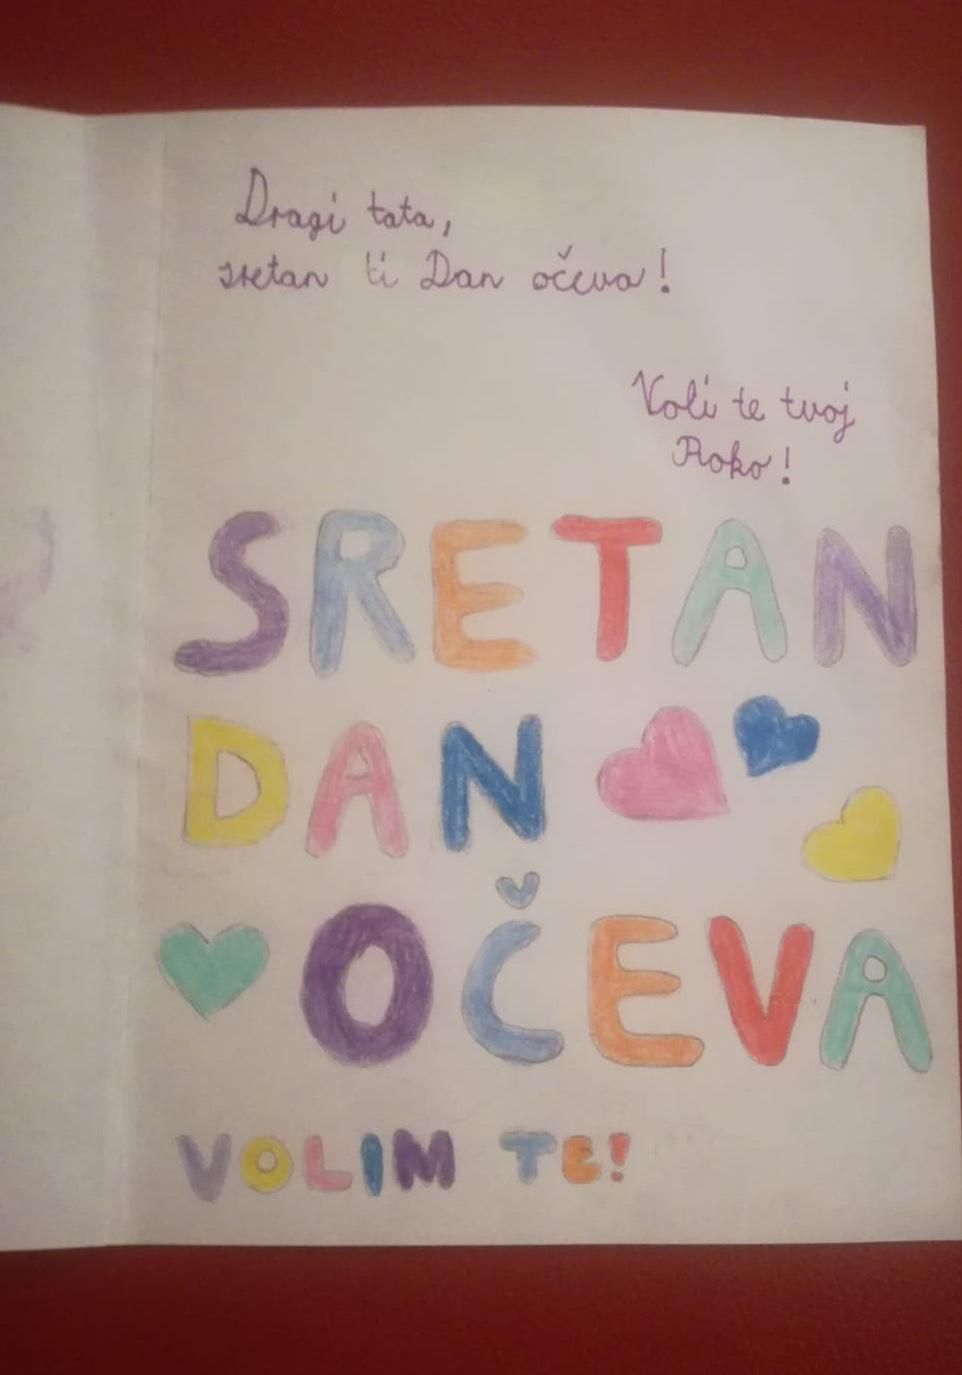 Dragi tata,
sretan ti Dan očeva!
Voli te tvoj
Roko!
SRETAN
DAN
OČEVA
VOLIM TE!